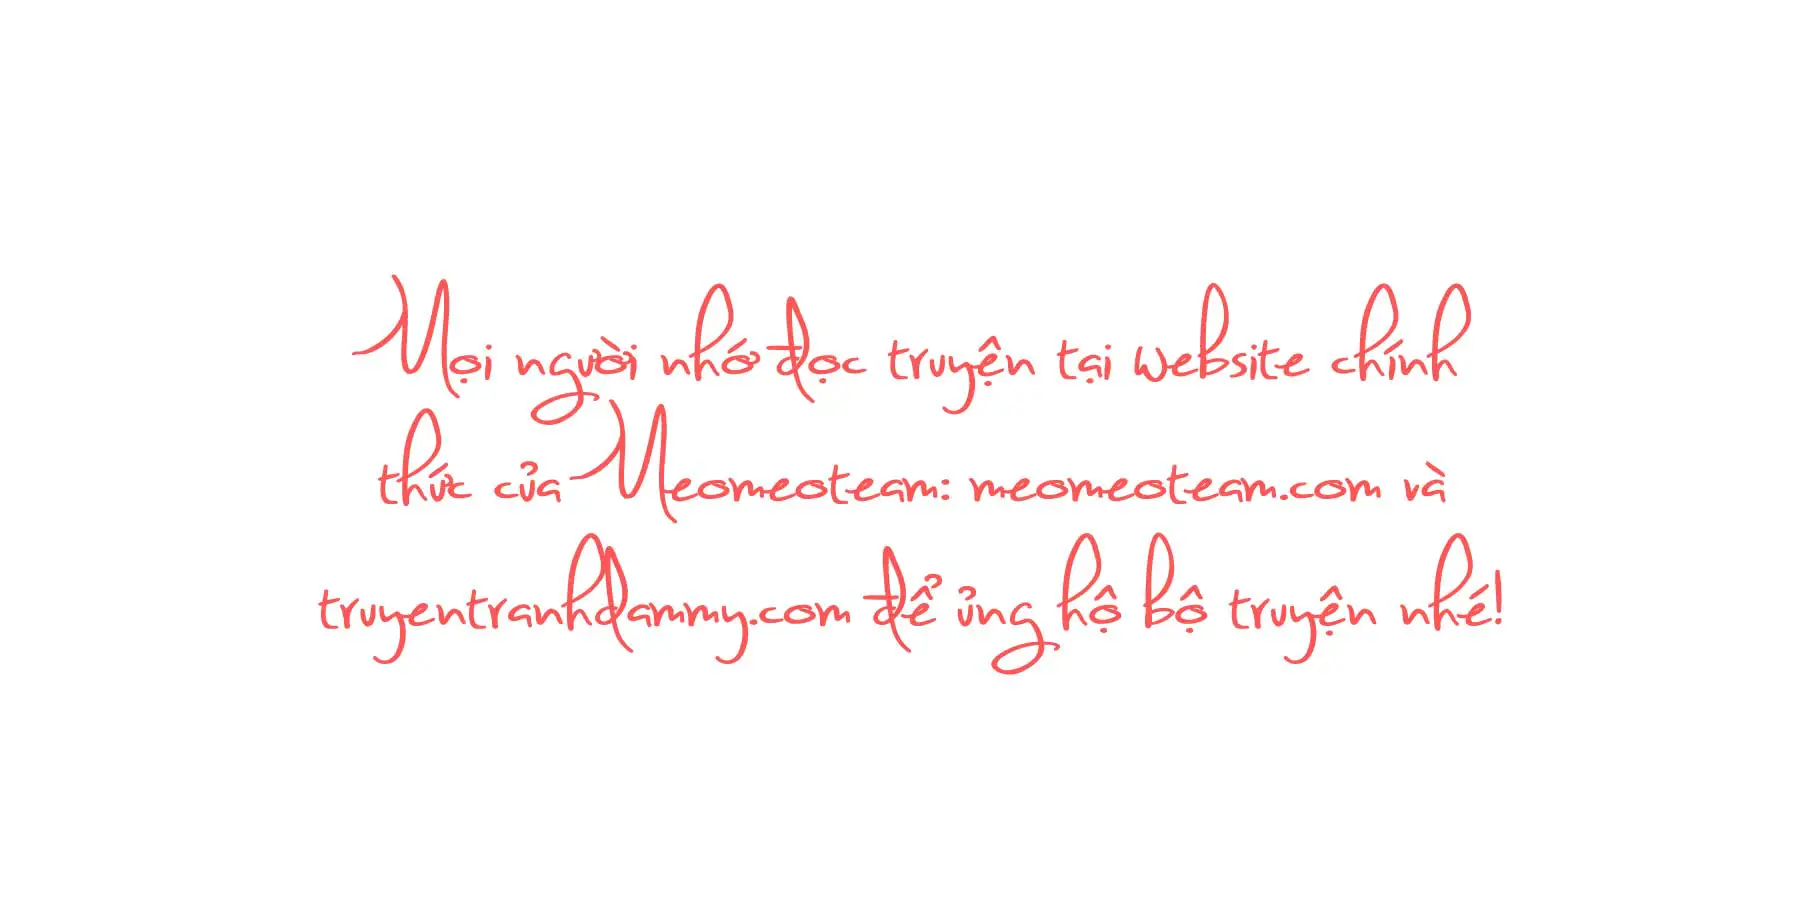 Mọi người nhớ đọc truyện tại website chính
thức của Meomeoteam: meomeoteam.com và
truyentranhdammy.com để ủng hộ bộ truyện nhé!